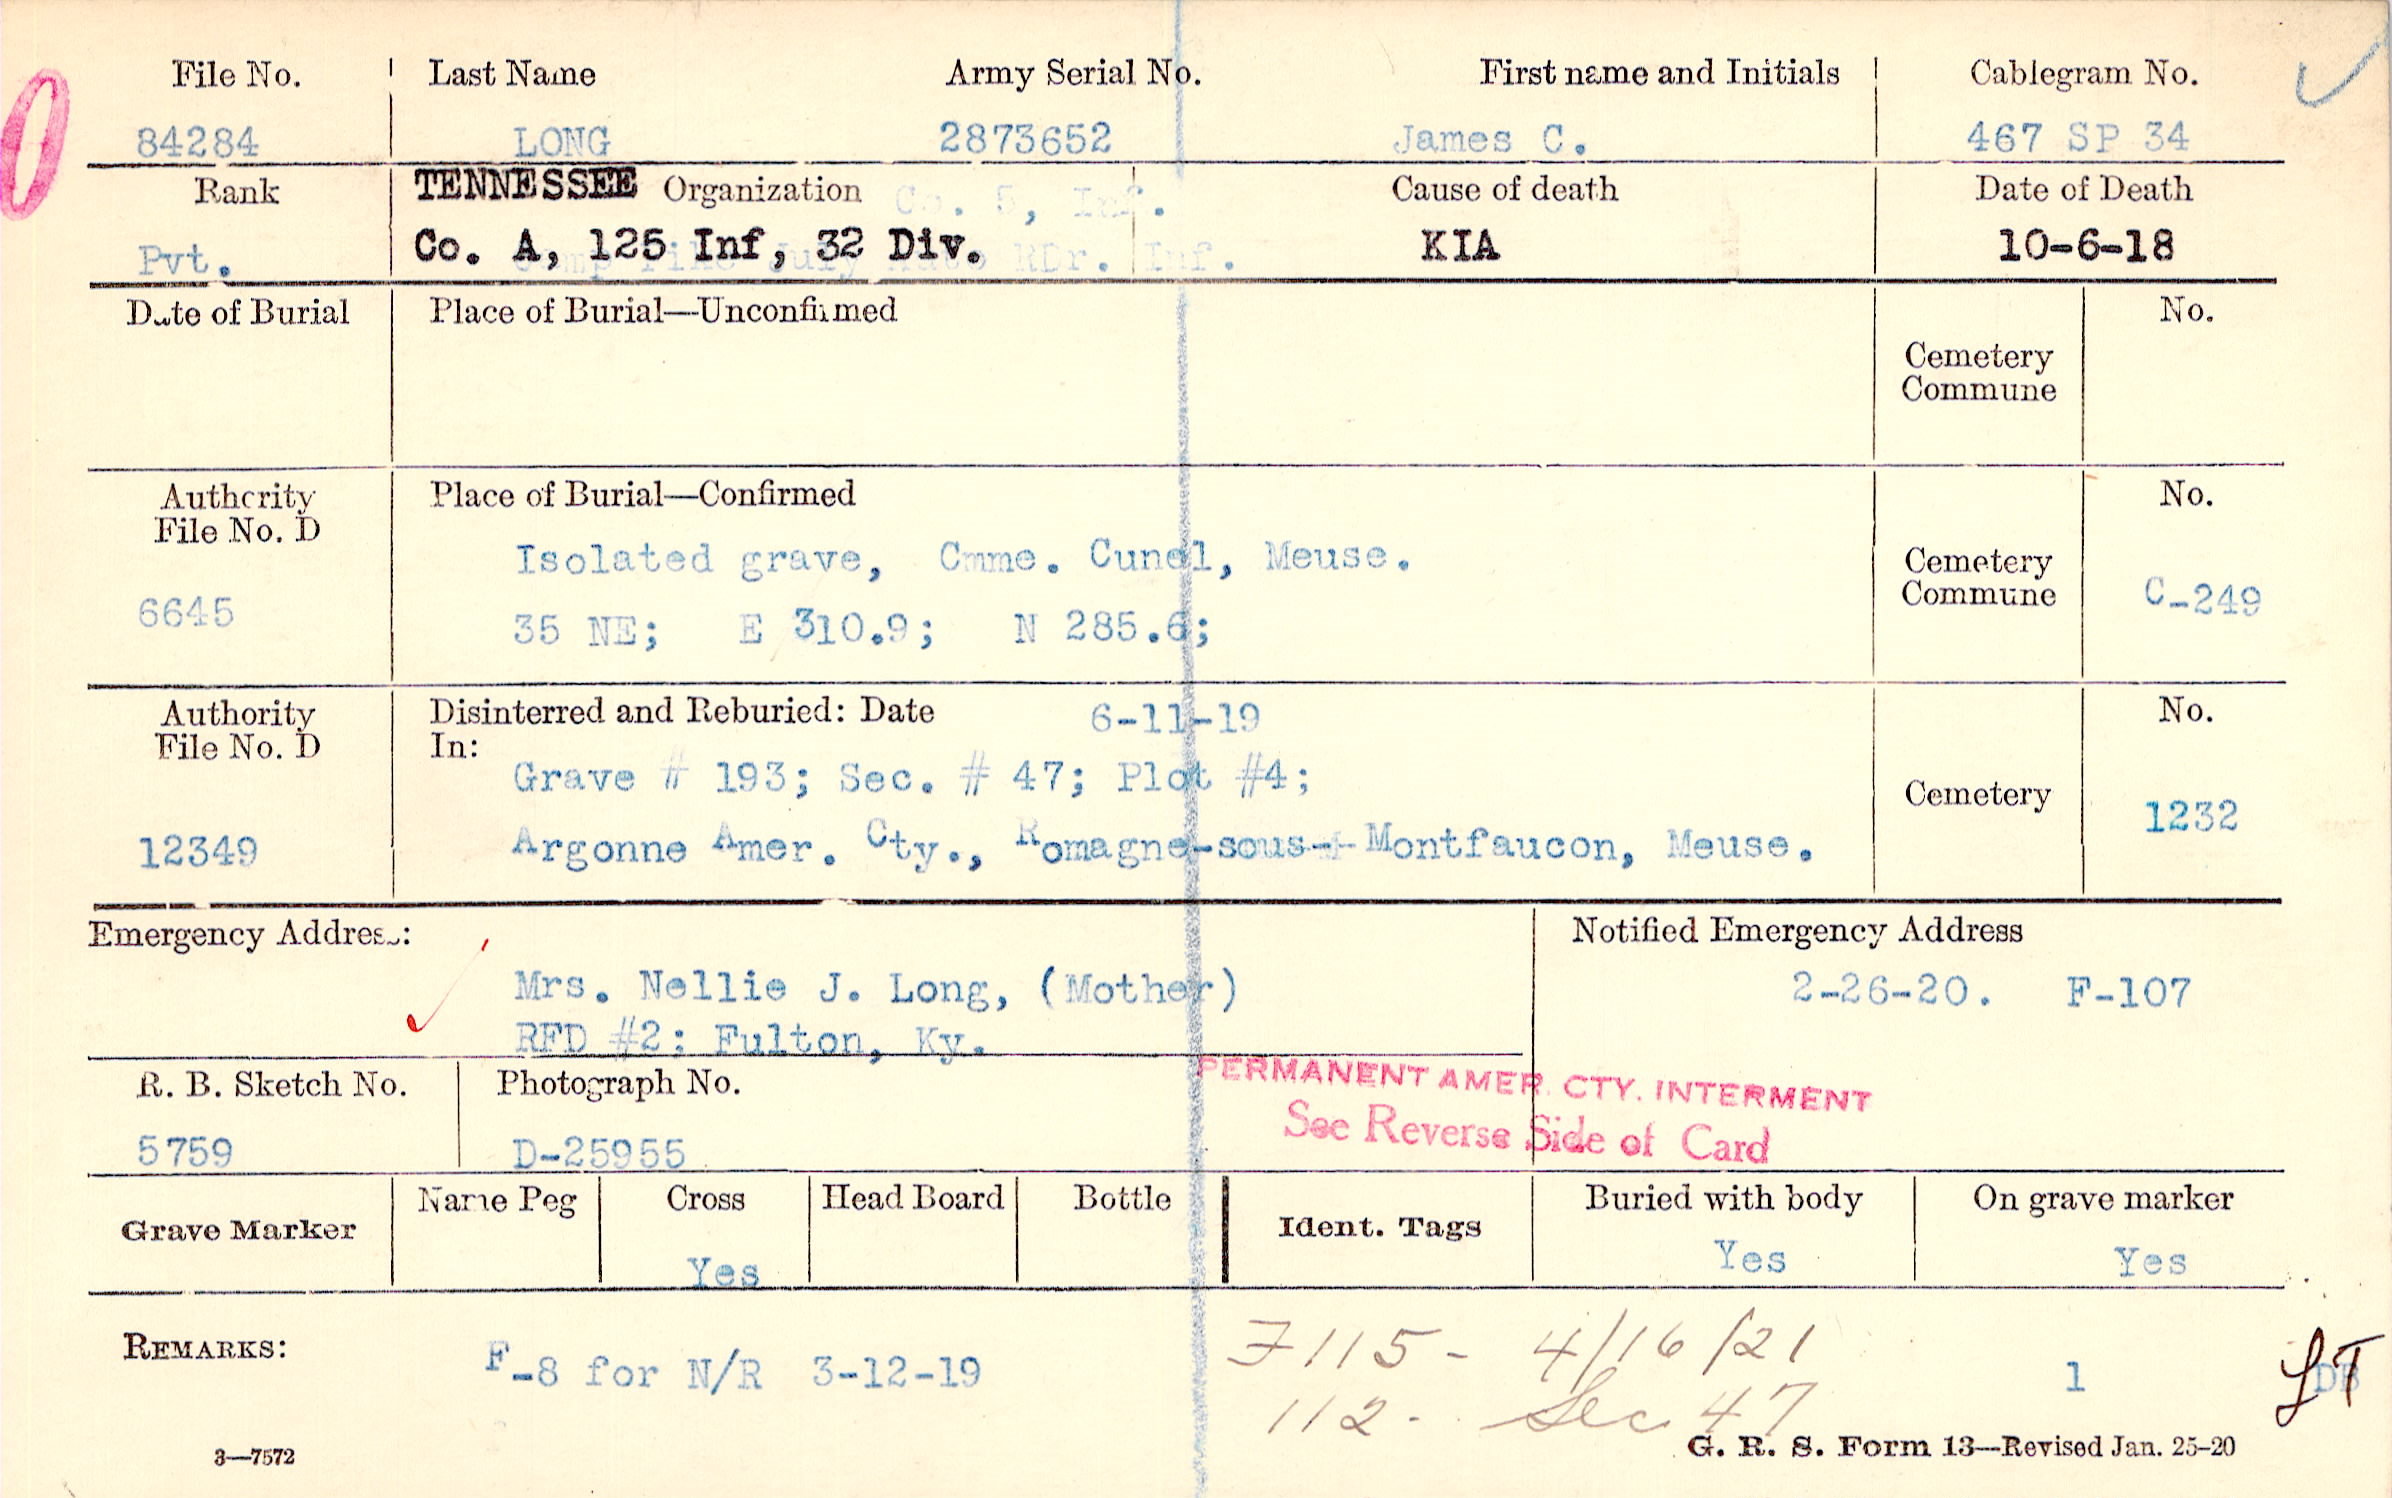 File No. Last Name Army Serial No. First name and Initials Cablegram No.
84284 LONG 2873652 James C. 467 SP 34
Rank TENNESSEE Organization Co. 5, Inf. Cause of death Date of Death
Pvt. Co. A, 125 Inf, 32 Div. KIA 10-6-18
Date of Burial Place of Burial—Unconfirmed No.
Cemetery
Commune
Authority Place of Burial—Confirmed No.
File No. D
Isolated grave, Cmme. Cunel, Meuse. Cemetery
6645 35 NE; E 310.9; N 285.6; Commune C-249
Authority Disinterred and Reburied: Date 6-11-19 No.
File No. D In:
Grave # 193; Sec. # 47; Plot #4; Cemetery 1232
12349 Argonne Amer. Cty., Romagne-sous-Montfaucon, Meuse.
Emergency Address: Notified Emergency Address
Mrs. Nellie J. Long, (Mother) 2-26-20. F-107
RFD #2; Fulton, Ky.
R. B. Sketch No. Photograph No. PERMANENT AMER. CTY. INTERMENT
5759 D-25955 See Reverse Side of Card
Grave Marker Name Peg Cross Head Board Bottle Ident. Tags Buried with body On grave marker
Yes Yes Yes
REMARKS: F-8 for N/R 3-12-19 F115- 4/16/21 1 LT
112- Sec 47
3—7572 G. R. S. Form 13—Revised Jan. 25-20